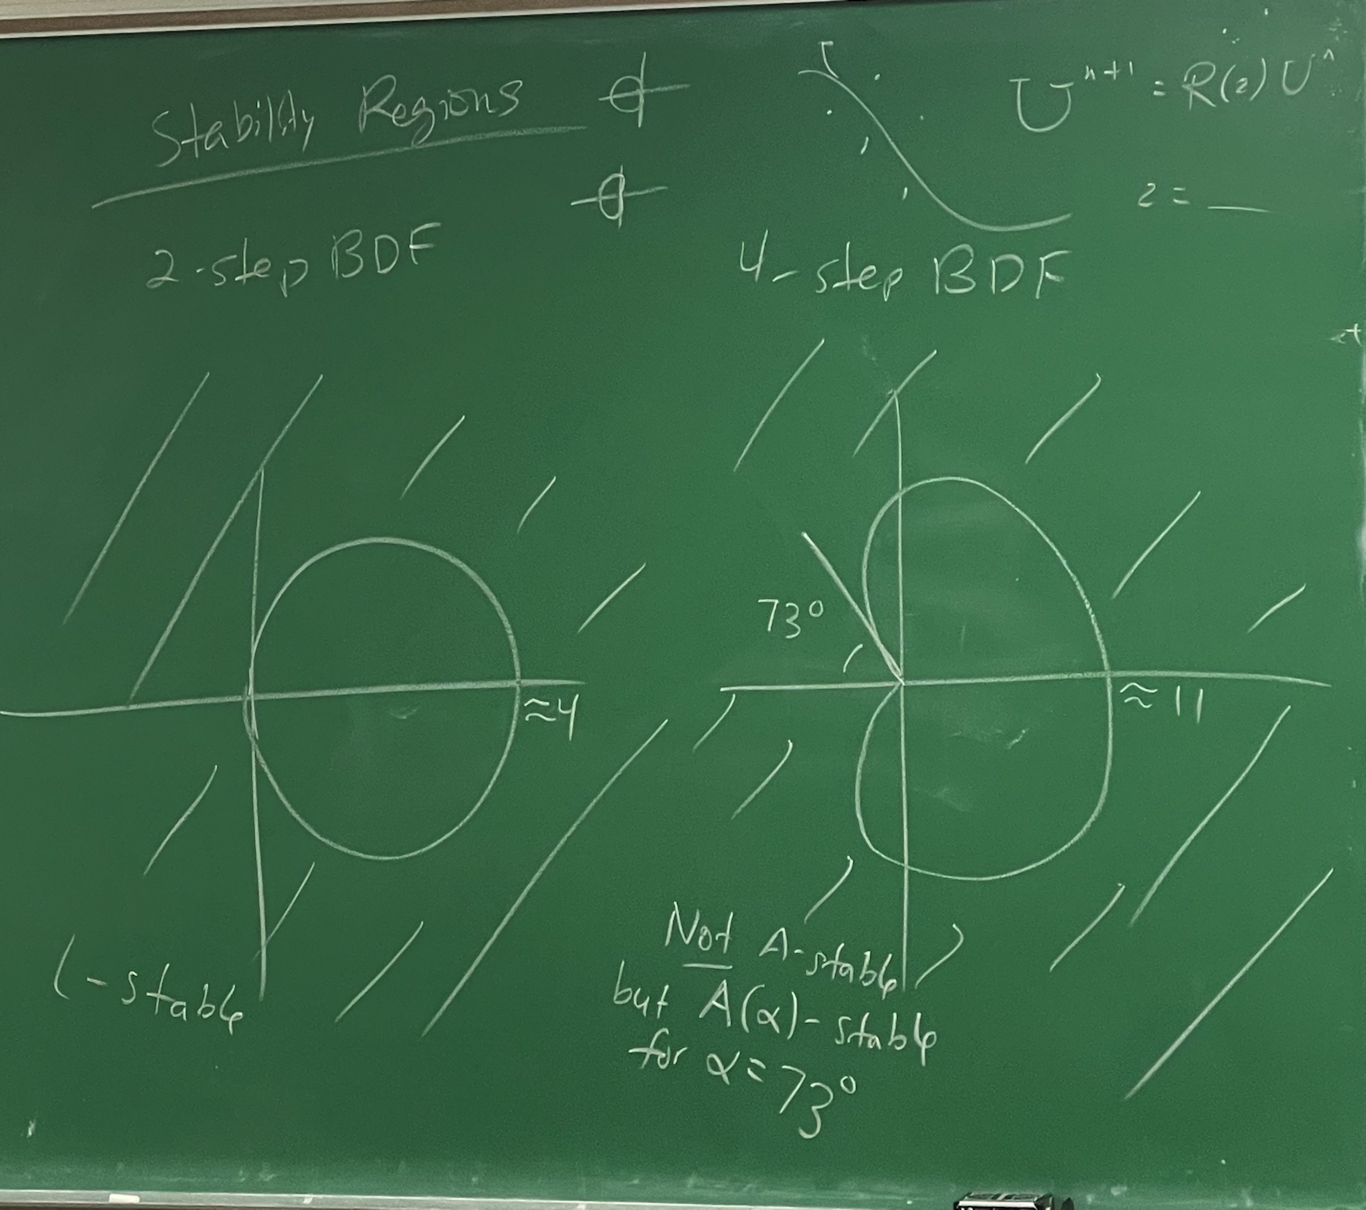 Stability Regions
U^{n+1} = R(z) U^n
z = __
2-step BDF
4-step BDF
73°
≈4
≈11
L-stable
Not A-stable
but A(α)-stable
for α = 73°